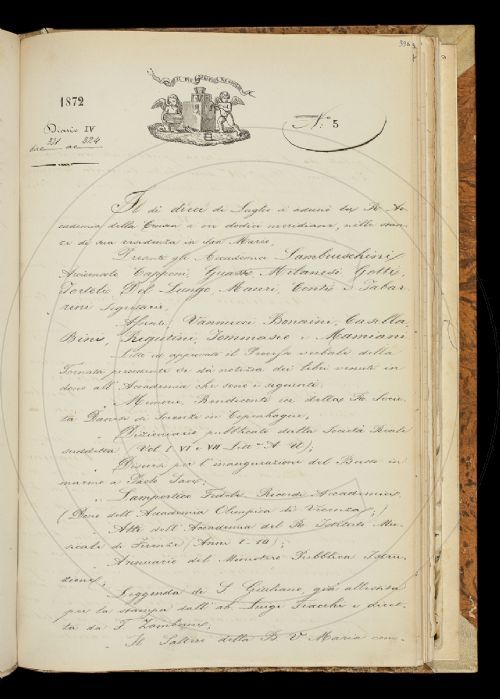 396
1872
Diario IV
dal 321 al 324
N.º 5
Il dì dieci di Luglio si adunò la R. Ac-
cademia della Crusca a ore dodici meridiane, nelle stan-
ze di sua residenza in San Marco.
Presenti gli Accademici Lambruschini
Arciconsolo Capponi, Guasti Milanesi Gotti,
Tortoli Del Lungo Mauri, Conti e Tabar-
rini Segretario.
Assenti, Vannucci Bonaini, Casella
Bini, Rigutini, Tommaseo e Mamiani
Letto ed approvato il Processo verbale della
Tornata precedente si dà notizia dei libri venuti in
dono all'Accademia che sono i seguenti.
Memorie, Rendiconto ec della R. Socie-
tà Danese di Scienze in Copenhaguen,
Dizionario pubblicato dalla Società Reale
suddetta (Vol. I VI e VII
Discorsi per l'inaugurazione del Busto in
marmo a Paolo
Lampertico Fedele Ricordi Accademici,
(Dono dell'Accademia Olimpica di Vicenza);
Atti dell'Accademia del R. Istituto Mu-
sicale di Firenze (Anni
Annuario del Ministero Pubblica Istru-
zione;
Leggenda di S. Giuliano, già allestita
per la stampa dall'ab. Luigi Fiacchi e
ta da F. Zambrini,
Il Salterio della B. V. Maria com-